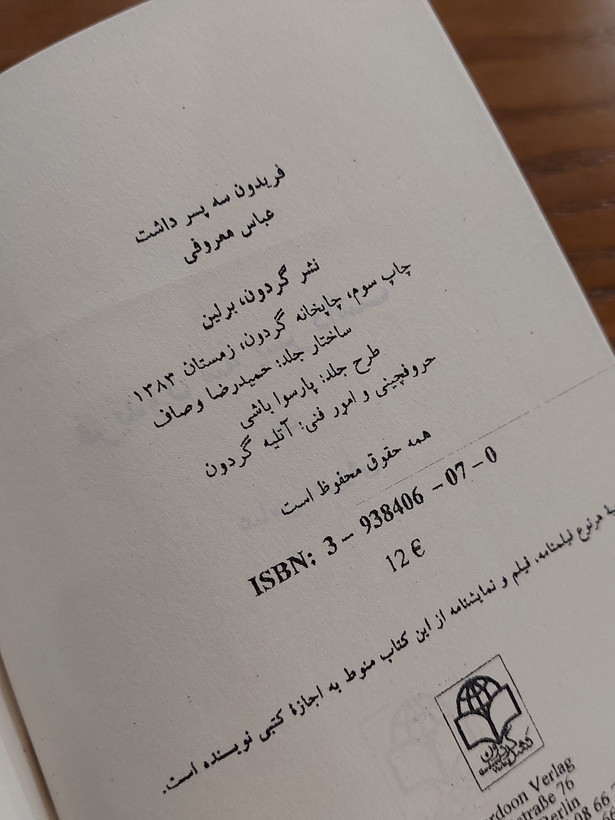 فریدون سه پسر داشت
عباس معروفی
نشر گردون، برلین
چاپ سوم، چاپخانه گردون، زمستان ۱۳۸۳
ساختار جلد: حمیدرضا وصاف
طرح جلد: پارسوا باشی
حروفچینی و امور فنی: آتلیه گردون
همه حقوق محفوظ است
ISBN: 3 – 938406 – 07 – 0
12 €
هر نوع فیلمنامه، فیلم و نمایشنامه از این کتاب منوط به اجازهٔ کتبی نویسنده است.
گردون
rdoon Verlag
straße 76
Berlin
08 66